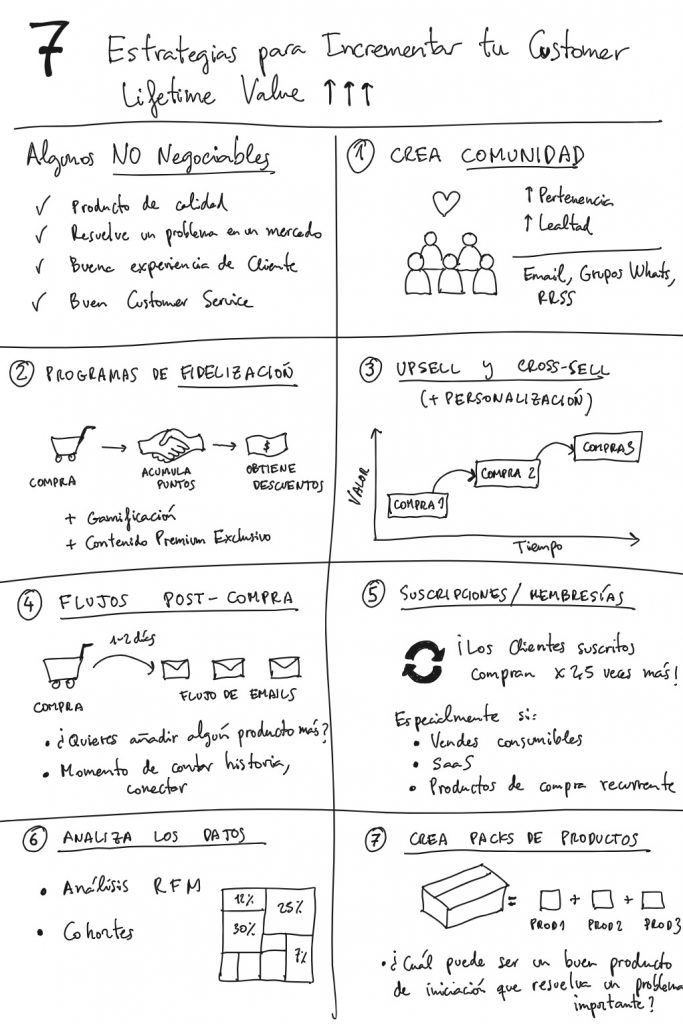 7 Estrategias para Incrementar tu Customer
Lifetime Value ↑↑↑
Algunos NO Negociables
✓ Producto de calidad
✓ Resuelve un problema en un mercado
✓ Buena experiencia de Cliente
✓ Buen Customer Service
1 CREA COMUNIDAD
↑ Pertenencia
↑ Lealtad
Email, Grupos Whats,
RRSS
2 PROGRAMAS DE FIDELIZACIÓN
COMPRA
ACUMULA
PUNTOS
$
OBTIENE
DESCUENTOS
+ Gamificación
+ Contenido Premium Exclusivo
3 UPSELL y CROSS-SELL
(+ PERSONALIZACIÓN)
VALOR
COMPRA 1
COMPRA 2
COMPRA 3
Tiempo
4 FLUJOS POST-COMPRA
1-2 días
COMPRA
FLUJO DE EMAILS
• ¿Quieres añadir algún producto más?
• Momento de contar historia,
conectar
5 SUSCRIPCIONES/MEMBRESÍAS
¡Los Clientes suscritos
compran x 2,5 veces más!
Especialmente si:
• Vendes consumibles
• SaaS
• Productos de compra recurrente
6 ANALIZA LOS DATOS
• Análisis RFM
• Cohortes
12%
25%
30%
7%
7 CREA PACKS DE PRODUCTOS
= + +
PROD1 PROD2 PROD3
• ¿Cuál puede ser un buen producto
de iniciación que resuelva un problema
importante?